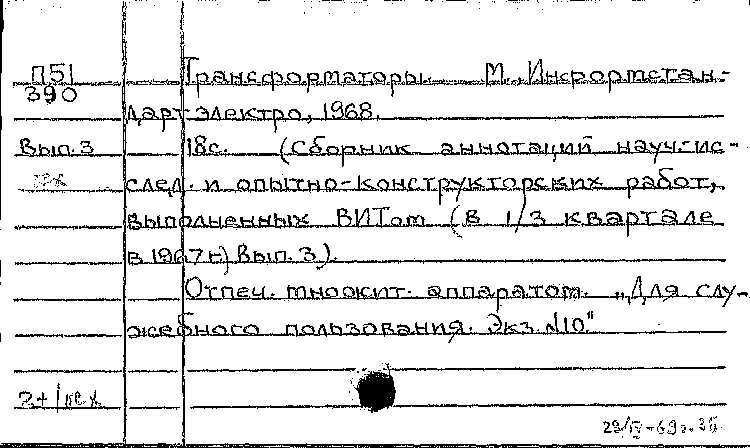 П51 Трансформаторы. М., Информстан-
390
дартэлектро, 1968.
Вып. 3 18с. (Сборник аннотаций науч.-ис-
след. и опытно-конструкторских работ,
выполненных ВИТом (в 1/3 квартале
в 1967г.) Вып. 3).
Отпеч. множит. аппаратом. „Для слу-
жебного пользования. Экз. №10."
2+1
29/IV-69г.